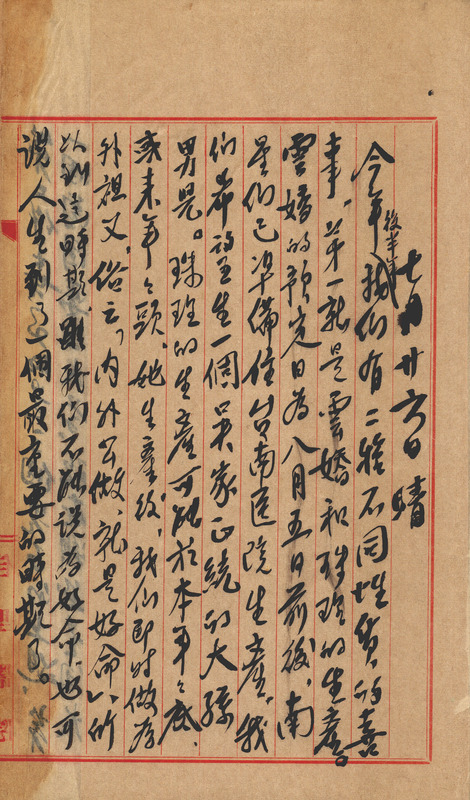 七月廿六日 晴
今年後半我們有二種不同性質的喜
事,第一就是雲嬌和珠的生產。
雲嬌的預定日為八月五日前後,南
星們已準備住台南医院生產,我
們希望生一個吳家正統的大孫
男兒。珠的生產可能於本年之底,
或来年之頭,她生產後,我們即時做為
外祖父,俗云,「內外公做,就是好命」,所
以到這時期,雖我們不能說為好命,也可
說人生到了一個最重要的時期了。